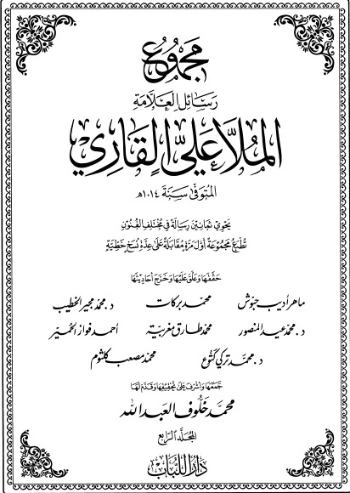 مجموع
رسائل العلامة
الملا علي القاري
المتوفى سنة ١٠١٤هـ
يحوي ثمانين رسالة في مختلف الفنون
تطبع مجموعة أول مرة مقابلة على عدة نسخ خطية
حققها وعلق عليها وخرج أحاديثها
ماهر أديب حبوش محمد بركات د. محمد مجير الخطيب
د. محمد عيد المنصور محمد طارق مغربية أحمد فواز الحمير
د. محمد تركي كتوع محمد مصعب كلثوم
جمعها وأشرف على تحقيقها وقدم لها
محمد خلوف العبد الله
المجلد الرابع
دار اللباب